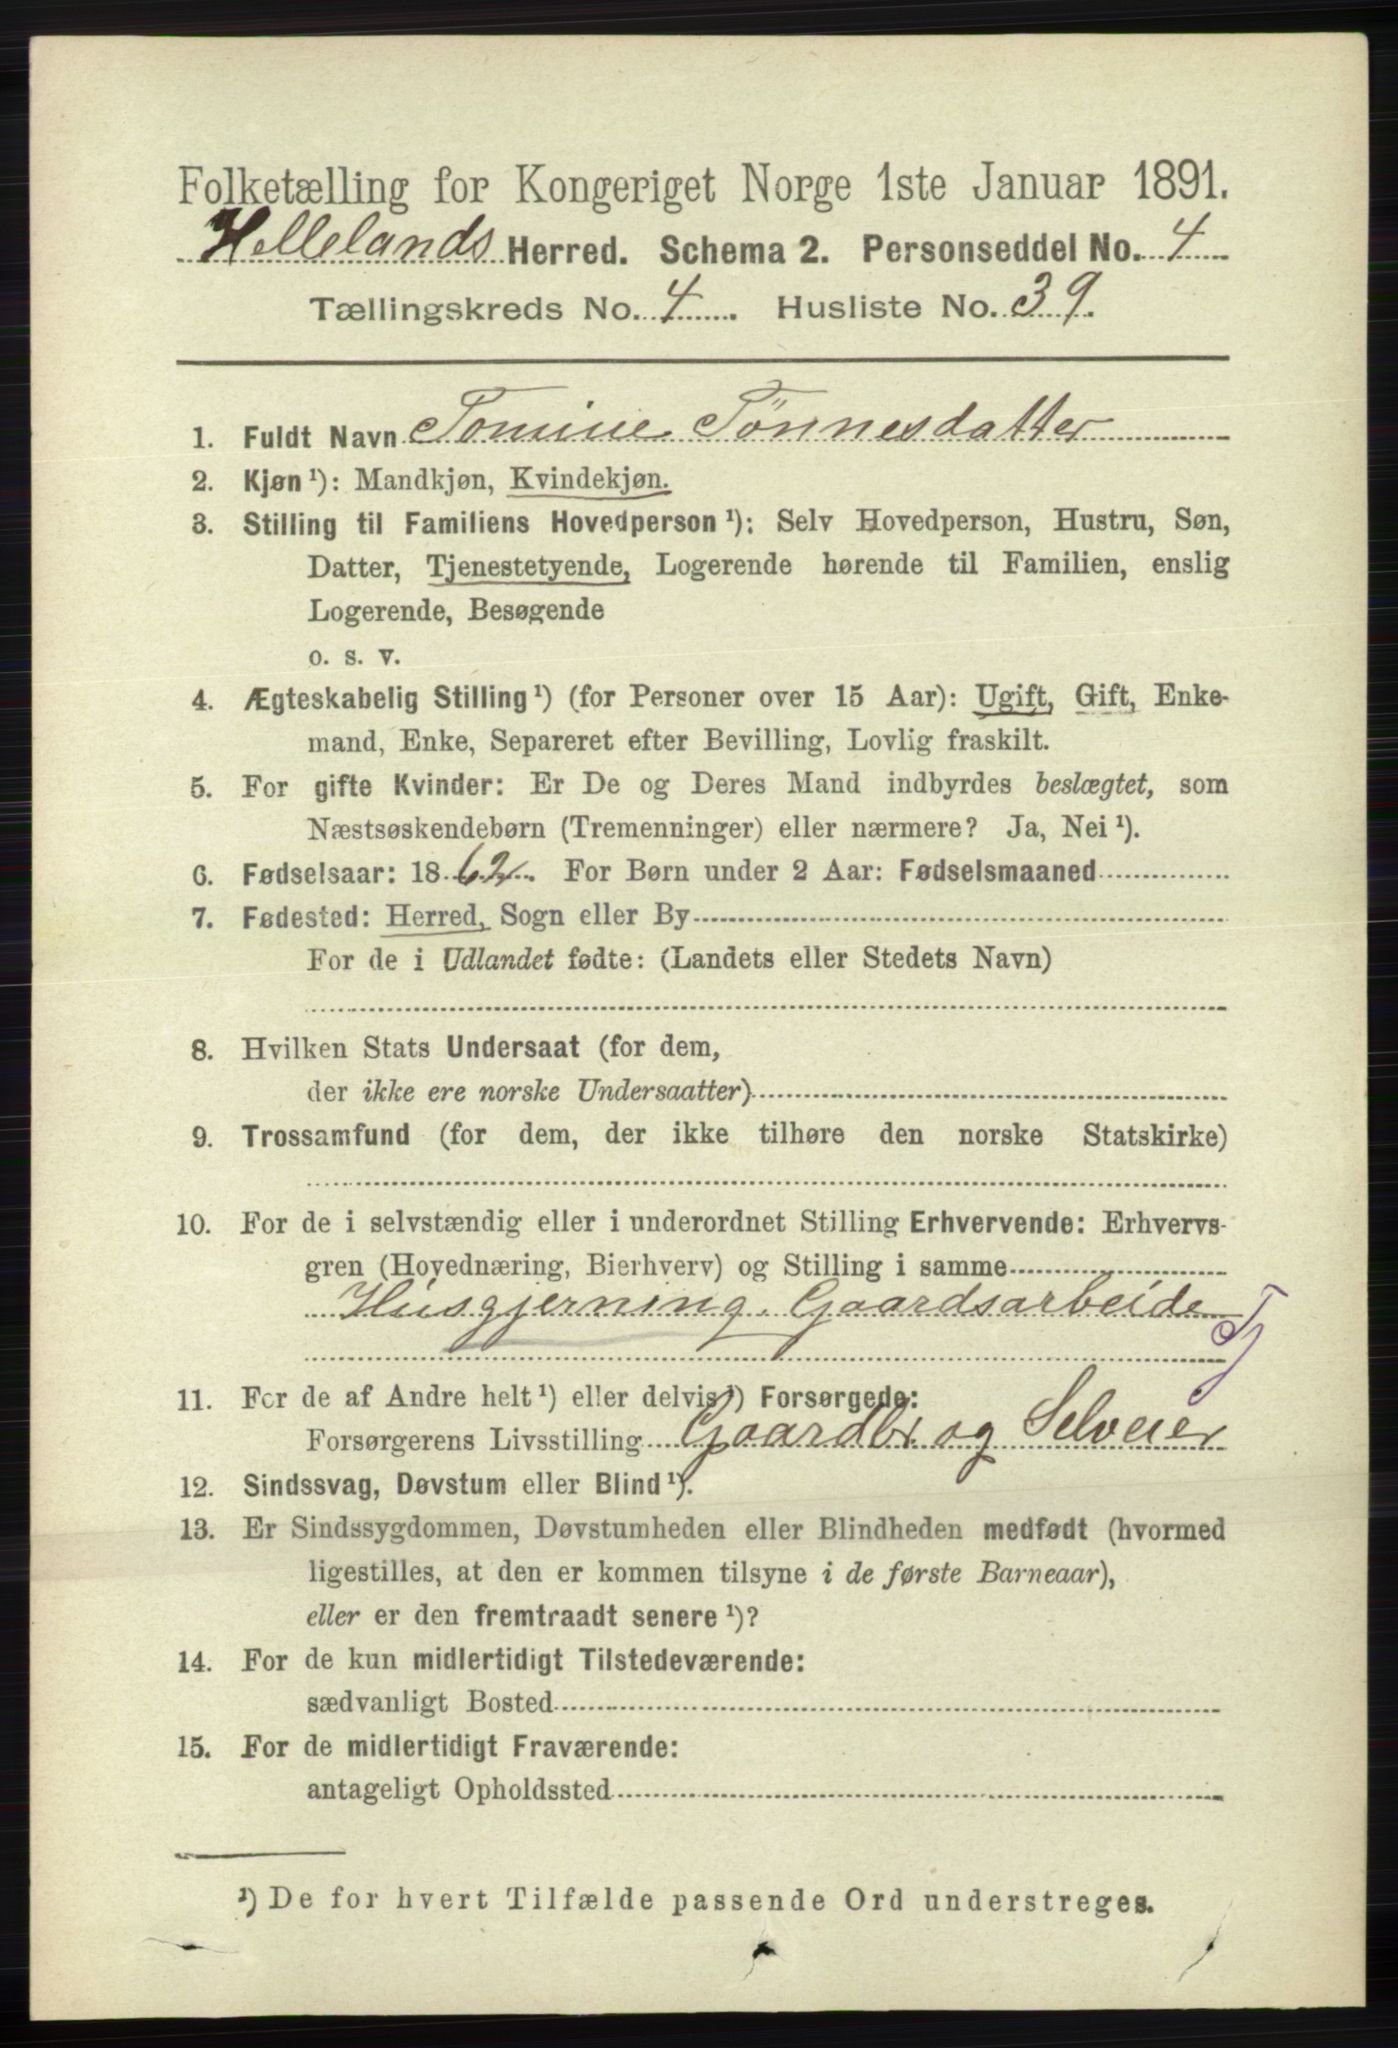 Folketælling for Kongeriget Norge 1ste Januar 1891.
Hellelands Herred. Schema 2. Personseddel No. 4
Tællingskreds No. 4. Husliste No. 39.
1. Fuldt Navn Tomine Tönnesdatter
2. Kjøn¹): Mandkjøn, Kvindekjøn.
3. Stilling til Familiens Hovedperson¹): Selv Hovedperson, Hustru, Søn,
Datter, Tjenestetyende, Logerende hørende til Familien, enslig
Logerende, Besøgende
o. s. v.
4. Ægteskabelig Stilling¹) (for Personer over 15 Aar): Ugift, Gift, Enke-
mand, Enke, Separeret efter Bevilling, Lovlig fraskilt.
5. For gifte Kvinder: Er De og Deres Mand indbyrdes beslægtet, som
Næstsøskendebørn (Tremenninger) eller nærmere? Ja, Nei¹).
6. Fødselsaar: 1862. For Børn under 2 Aar: Fødselsmaaned
7. Fødested: Herred, Sogn eller By
For de i Udlandet fødte: (Landets eller Stedets Navn)
8. Hvilken Stats Undersaat (for dem,
der ikke ere norske Undersaatter)
9. Trossamfund (for dem, der ikke tilhøre den norske Statskirke)
10. For de i selvstændig eller i underordnet Stilling Erhvervende: Erhvervs-
gren (Hovednæring, Bierhverv) og Stilling i samme
Husgjerning. Gaardsarbeide
Tj
11. For de af Andre helt¹) eller delvis¹) Forsørgede:
Forsørgerens Livsstilling Gaardbr. og Selveier
12. Sindssvag, Døvstum eller Blind¹).
13. Er Sindssygdommen, Døvstumheden eller Blindheden medfødt (hvormed
ligestilles, at den er kommen tilsyne i de første Barneaar),
eller er den fremtraadt senere¹)?
14. For de kun midlertidigt Tilstedeværende:
sædvanligt Bosted
15. For de midlertidigt Fraværende:
antageligt Opholdssted
¹) De for hvert Tilfælde passende Ord understreges.